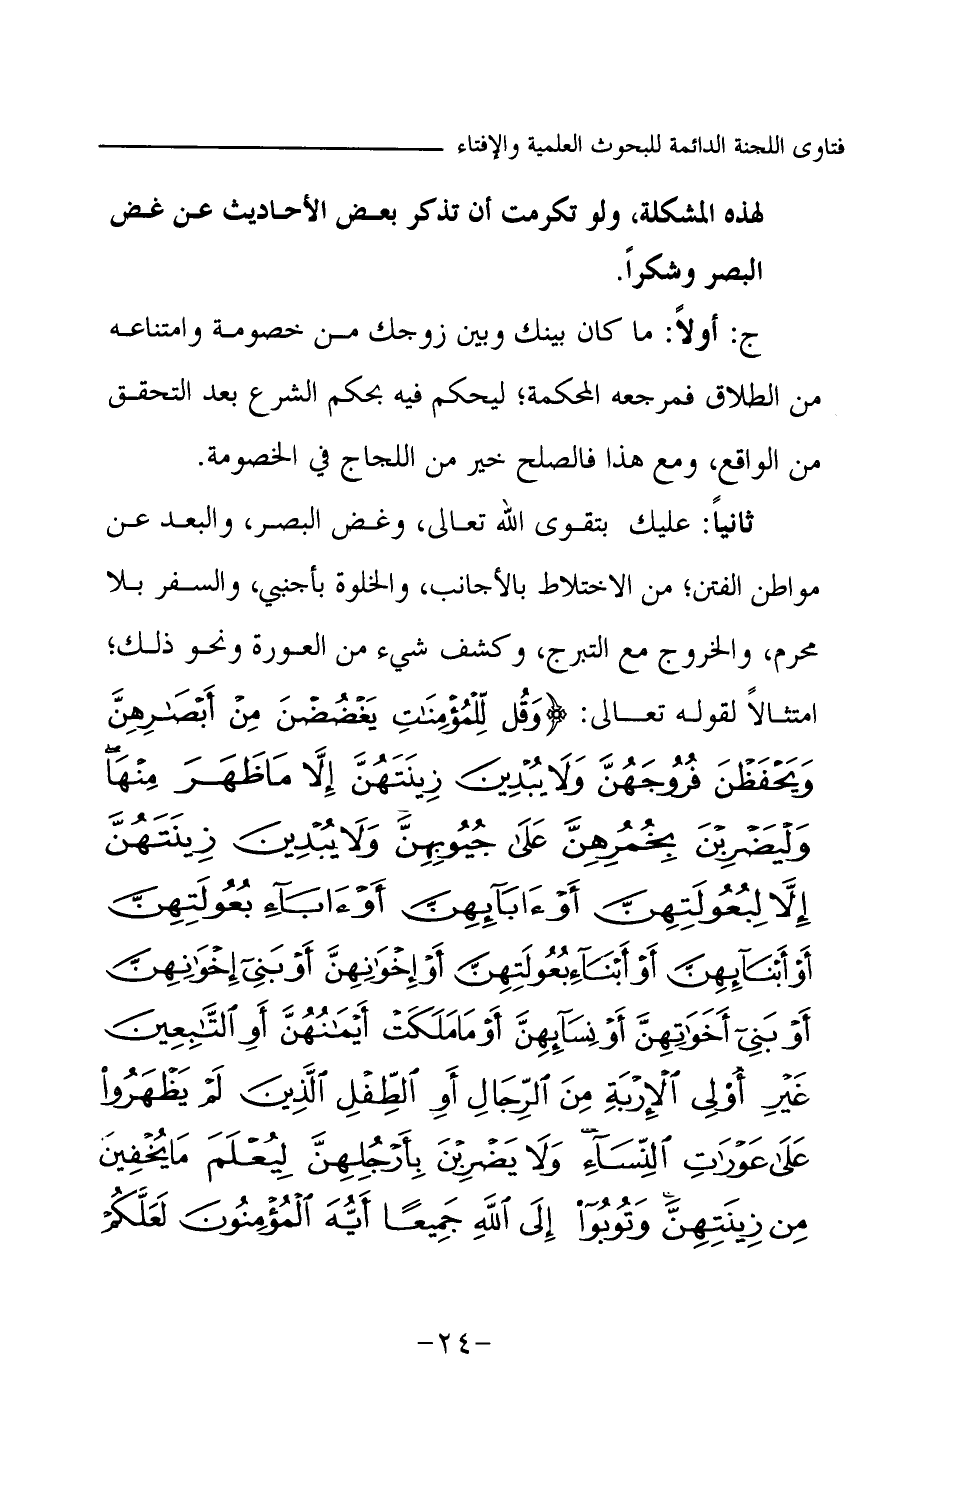 فتاوى اللجنة الدائمة للبحوث العلمية والإفتاء
لهذه المشكلة، ولو تكرمت أن تذكر بعض الأحاديث عن غض
البصر وشكراً.
ج: أولاً: ما كان بينك وبين زوجك من خصومة وامتناعه
من الطلاق فمرجعه المحكمة؛ ليحكم فيه بحكم الشرع بعد التحقق
من الواقع، ومع هذا فالصلح خير من اللجاج في الخصومة.
ثانياً: عليك بتقوى الله تعالى، وغض البصر، والبعد عن
مواطن الفتن؛ من الاختلاط بالأجانب، والخلوة بأجنبي، والسفر بلا
محرم، والخروج مع التبرج، وكشف شيء من العورة ونحو ذلك؛
امتثالاً لقوله تعالى: ﴿وَقُل لِّلْمُؤْمِنَٰتِ يَغْضُضْنَ مِنْ أَبْصَٰرِهِنَّ
وَيَحْفَظْنَ فُرُوجَهُنَّ وَلَا يُبْدِينَ زِينَتَهُنَّ إِلَّا مَا ظَهَرَ مِنْهَا ۖ
وَلْيَضْرِبْنَ بِخُمُرِهِنَّ عَلَىٰ جُيُوبِهِنَّ ۖ وَلَا يُبْدِينَ زِينَتَهُنَّ
إِلَّا لِبُعُولَتِهِنَّ أَوْ ءَابَآئِهِنَّ أَوْ ءَابَآءِ بُعُولَتِهِنَّ
أَوْ أَبْنَآئِهِنَّ أَوْ أَبْنَآءِ بُعُولَتِهِنَّ أَوْ إِخْوَٰنِهِنَّ أَوْ بَنِىٓ إِخْوَٰنِهِنَّ
أَوْ بَنِىٓ أَخَوَٰتِهِنَّ أَوْ نِسَآئِهِنَّ أَوْ مَا مَلَكَتْ أَيْمَٰنُهُنَّ أَوِ ٱلتَّٰبِعِينَ
غَيْرِ أُو۟لِى ٱلْإِرْبَةِ مِنَ ٱلرِّجَالِ أَوِ ٱلطِّفْلِ ٱلَّذِينَ لَمْ يَظْهَرُوا۟
عَلَىٰ عَوْرَٰتِ ٱلنِّسَآءِ ۖ وَلَا يَضْرِبْنَ بِأَرْجُلِهِنَّ لِيُعْلَمَ مَا يُخْفِينَ
مِن زِينَتِهِنَّ ۚ وَتُوبُوٓا۟ إِلَى ٱللَّهِ جَمِيعًا أَيُّهَ ٱلْمُؤْمِنُونَ لَعَلَّكُمْ
-٢٤-